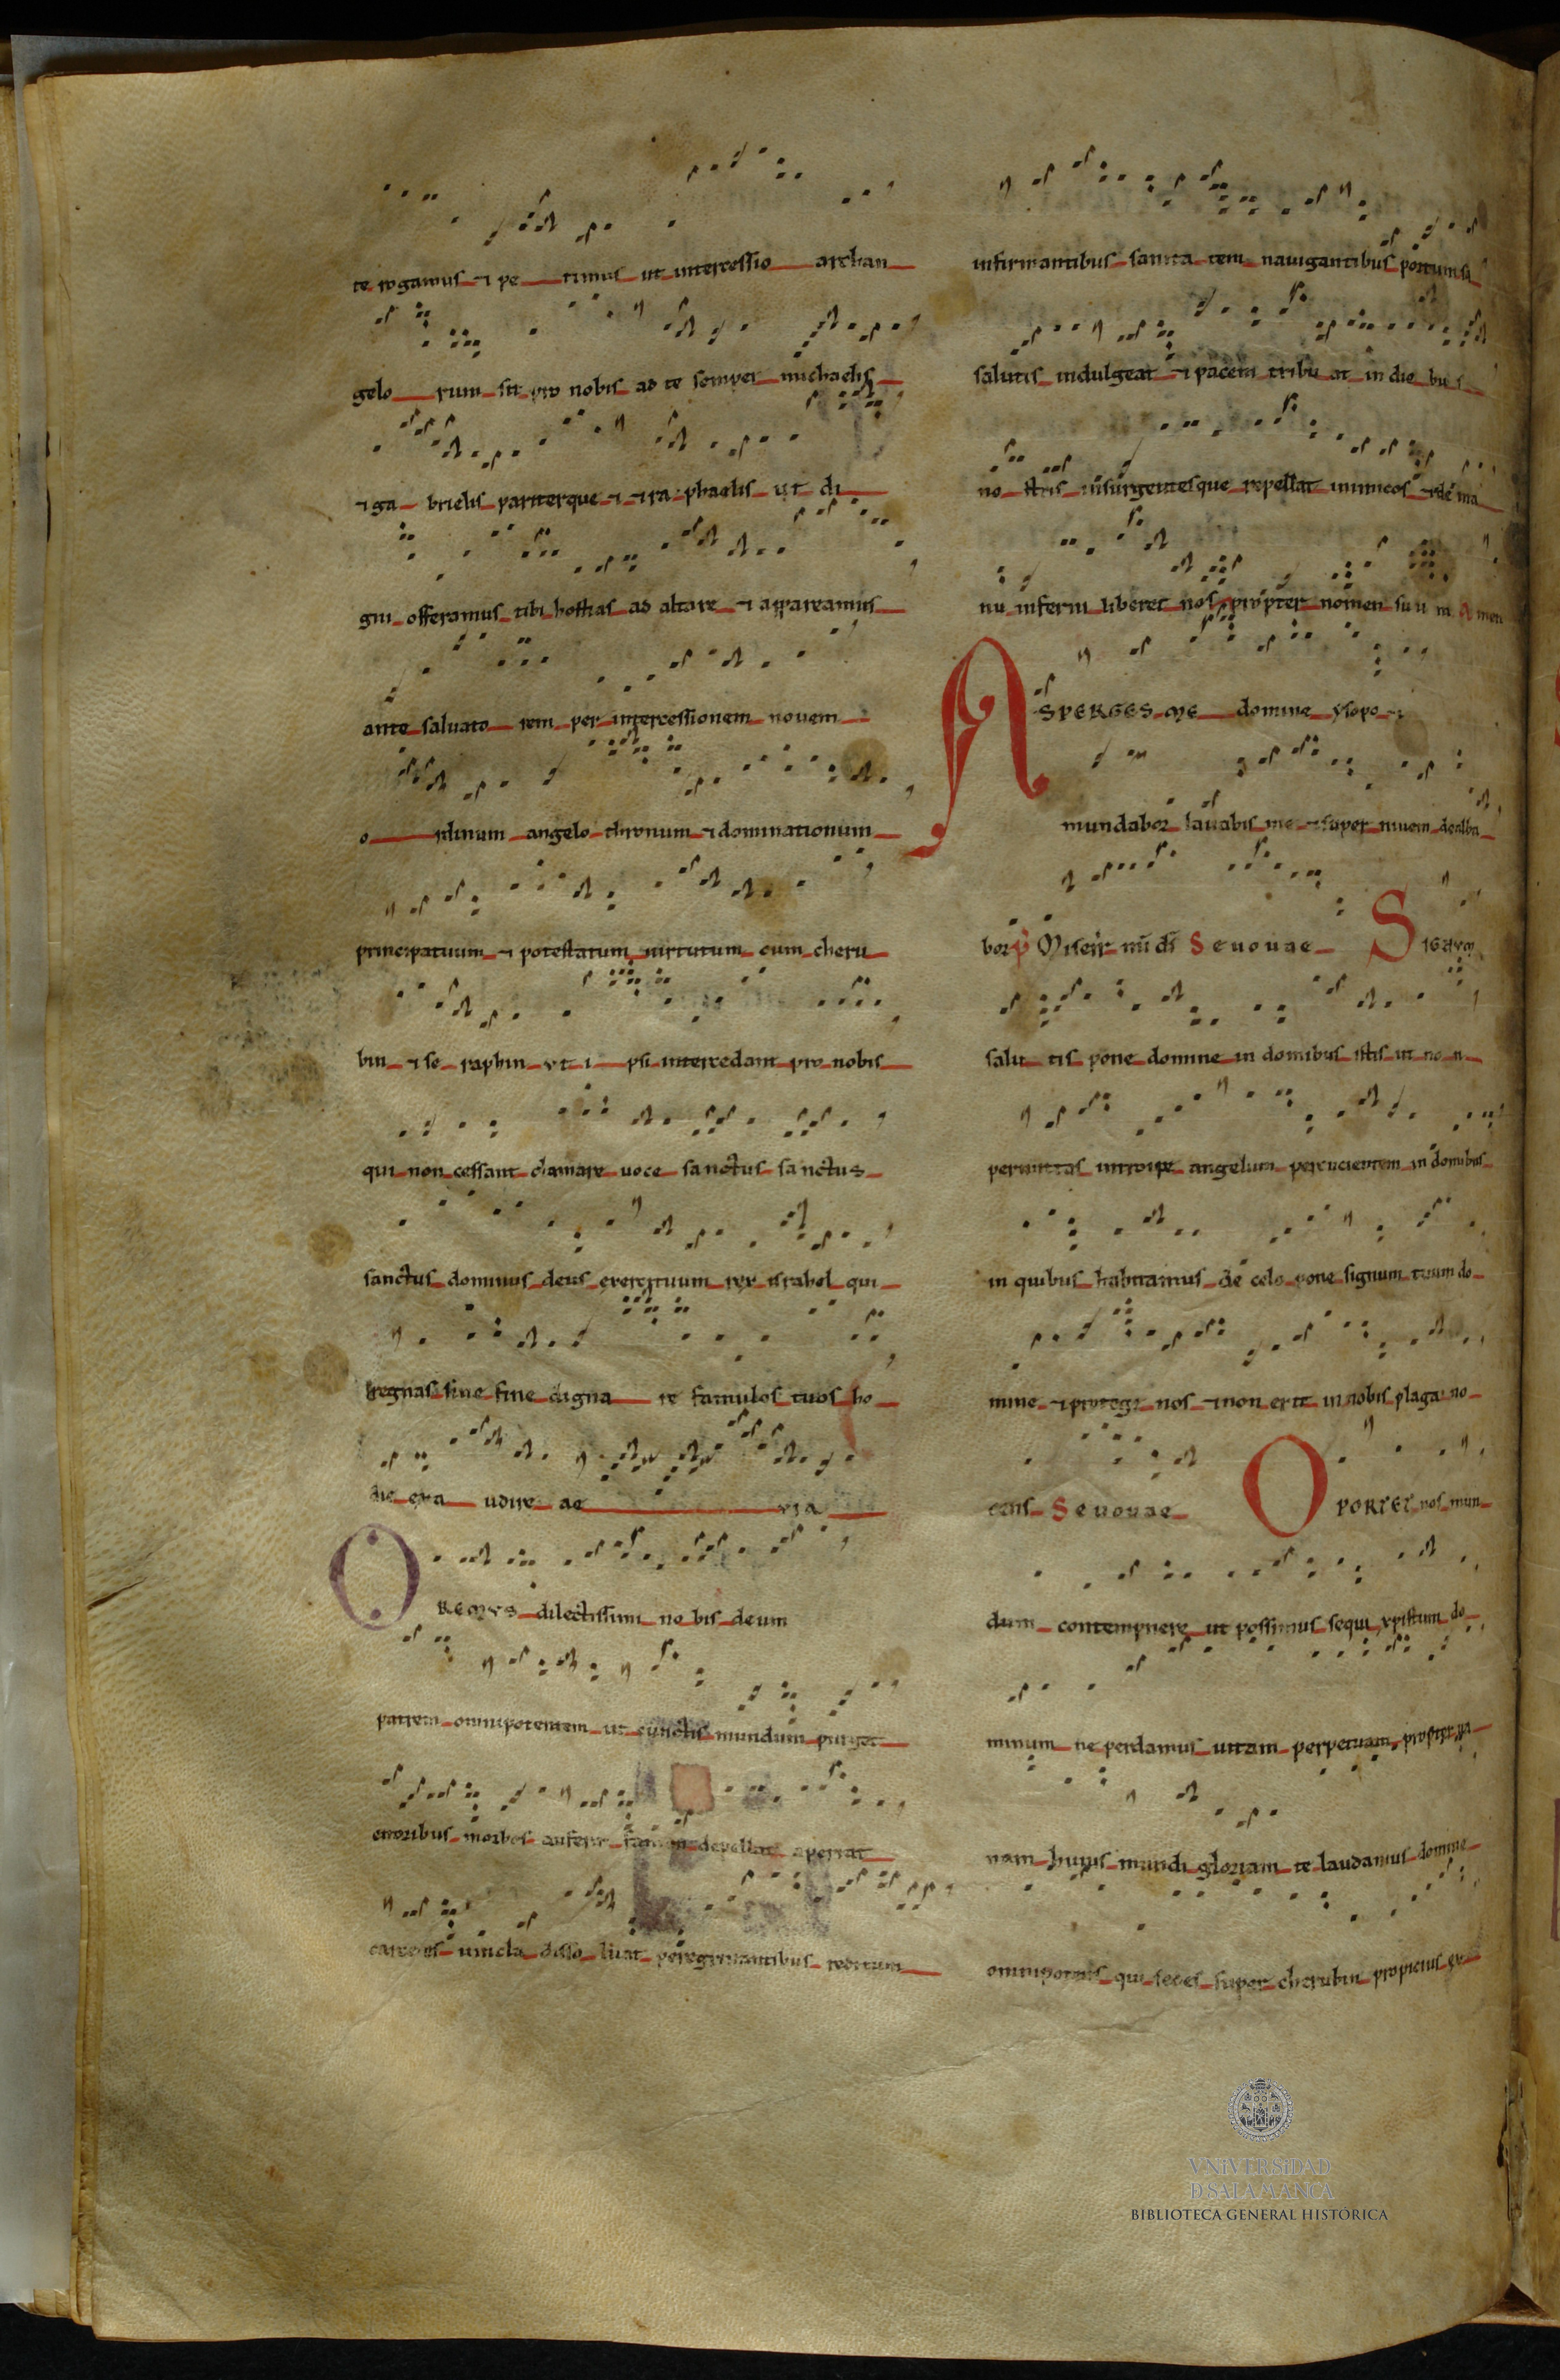 te rogamus ⁊ pe timus ut intercessio archan
gelo rum sit pro nobis ad te semper michaelis
⁊ ga brielis pariterque ⁊ ⁊ ra phaelis ut di
gni offeramus tibi hostias ad altare ⁊ appareamus
ante saluato rem per intercessionem nouem
o rdinum angelo thronum ⁊ dominationum
principatuum ⁊ potestatum uirtutum cum cheru
bin ⁊ se raphin ut i psi intercedant pro nobis
qui non cessant clamare uoce sanctus sanctus
sanctus dominus deus exercituum rex israhel qui
regnas sine fine digna re famulos tuos ho
die exa udire ae via
OREMVS dilectissimi no bis deum
patrem omnipotentem ut cunctis mundum purget
erroribus morbos auferat famem depellat aperiat
carceres uincla disso luat peregrinantibus reditum
infirmantibus sanita tem nauigantibus portum sa
salutis indulgeat ⁊ pacem tribu at in die bus
no stris insurgentesque repellat inimicos ⁊ de ma
nu inferni liberet nos propter nomen suu m Amen
ASPERGES ME domine ysopo ⁊
mundabor lauabis me ⁊ super niuem dealba
bor p̃ Miseir̃ mi d̃s Seuouae SIGNVM
salu tis pone domine in domibus istis ut no n
permittas introire angelum percucientem in domibus
in quibus habitamus de celo pone signum tuum do
mine ⁊ protege nos ⁊ non erit in nobis plaga no
cens Seuouae OPORTET nos mun
dum contempnere ut possimus sequi xpistum do
minum ne perdamus uitam perpetuam propter ua
nam huius mundi gloriam te laudamus domine
omnipotens qui sedes super cherubin propicius ex
VNiVERSiDAD
D SALAMANCA
BIBLIOTECA GENERAL HISTÓRICA